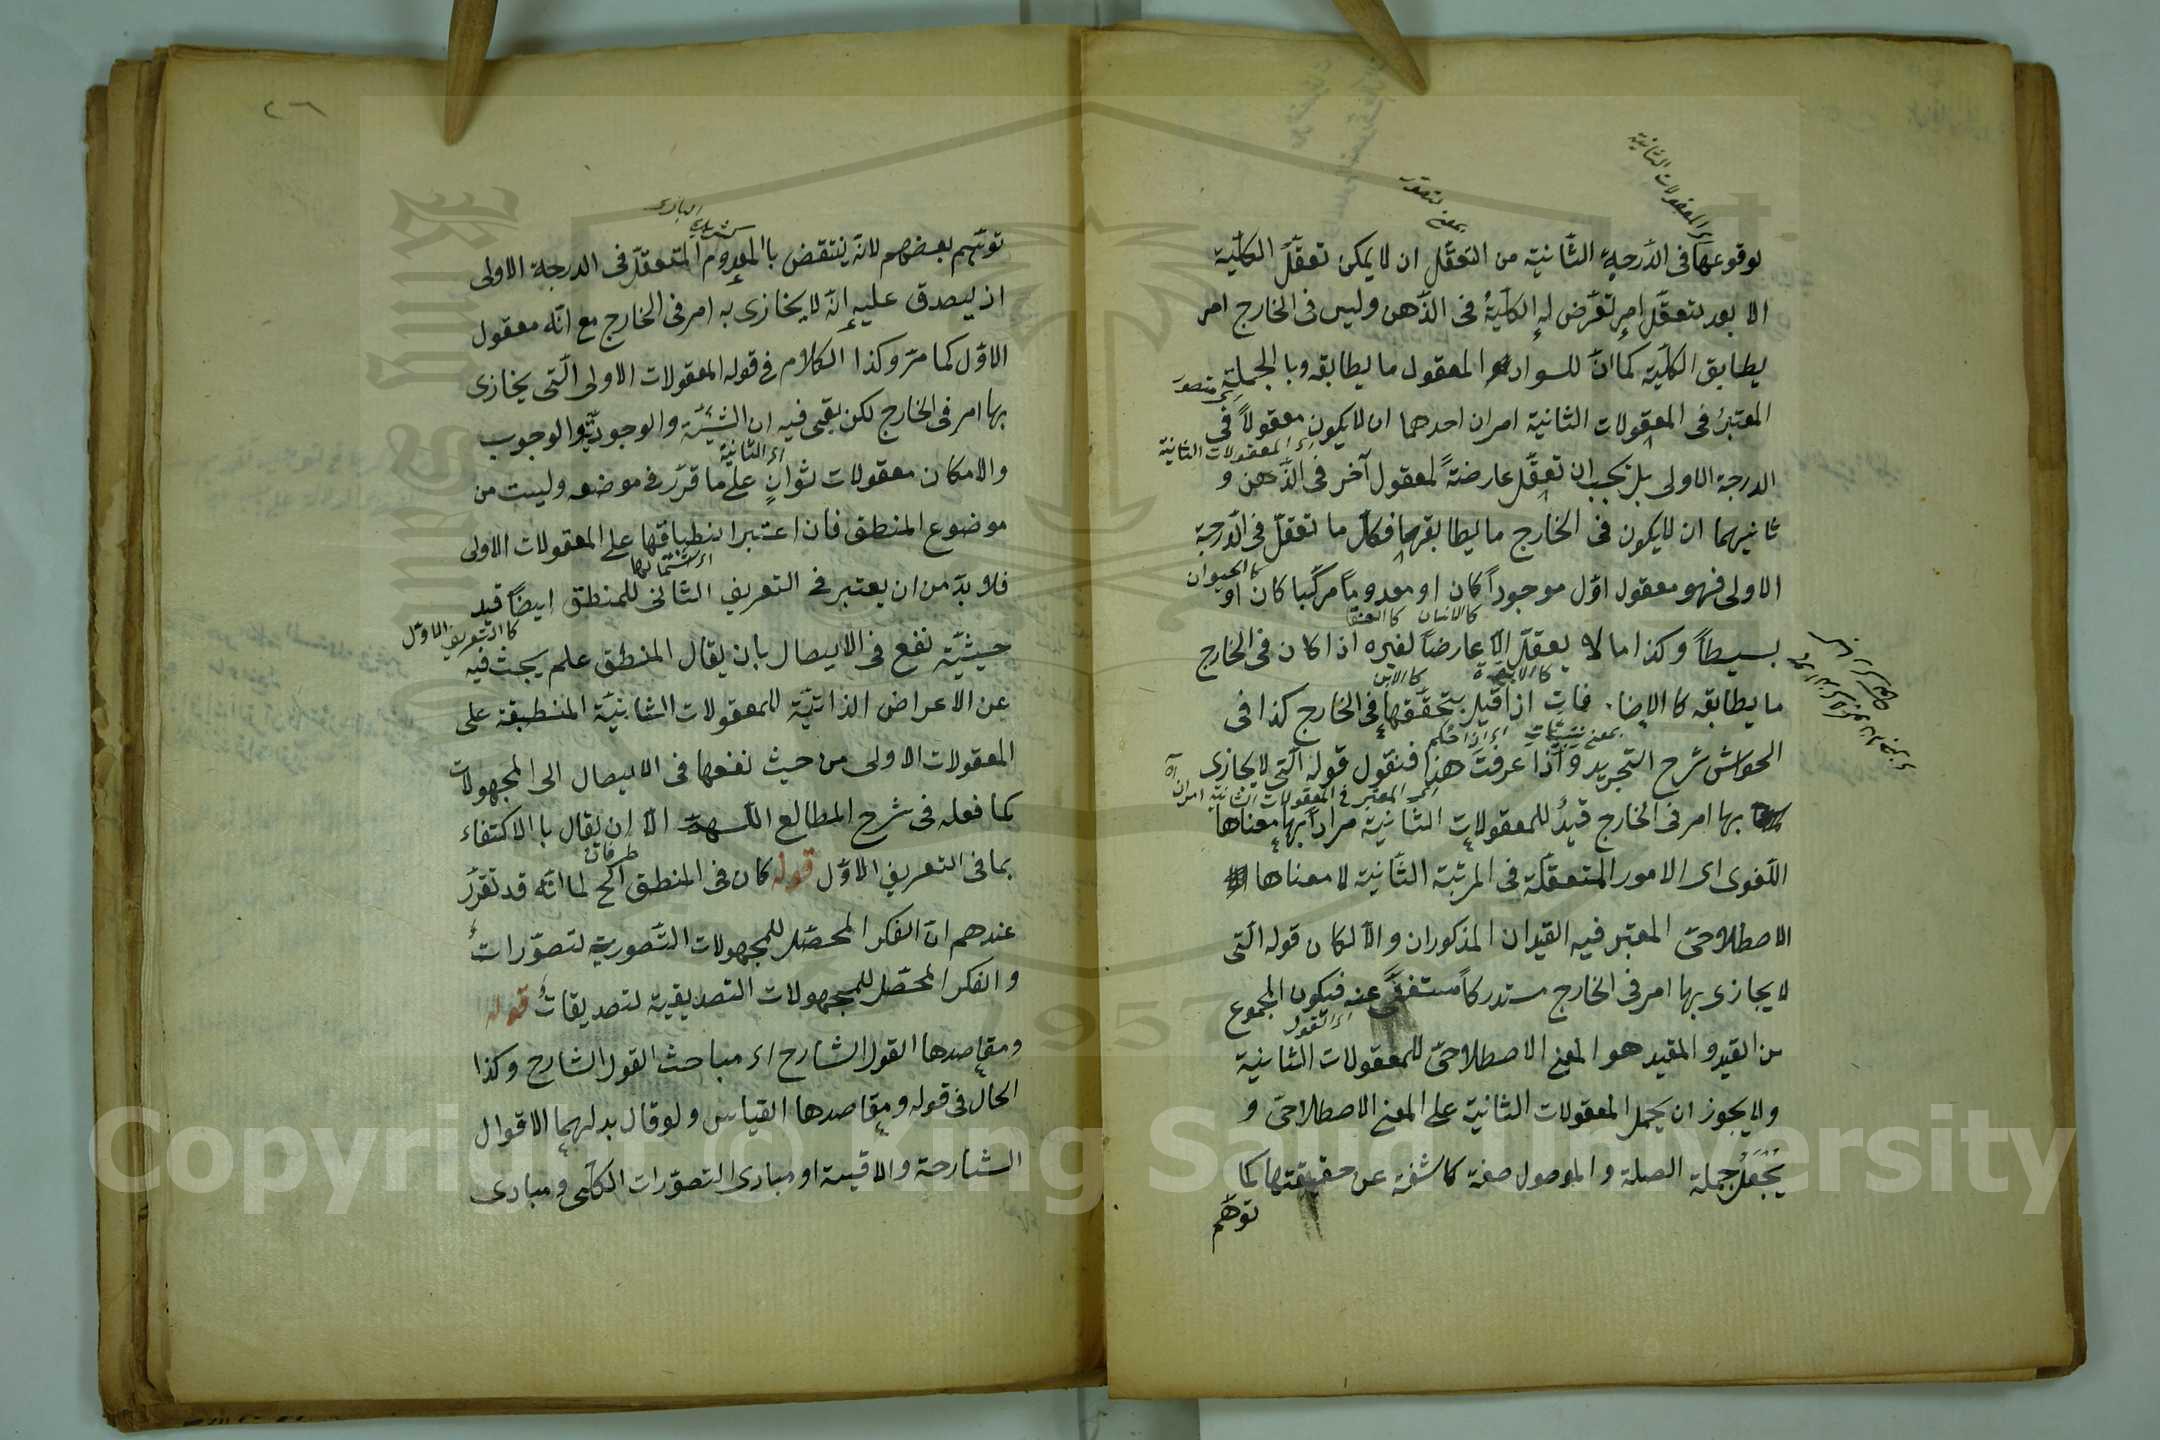 اى المعقولات الثانية
بمعنى تصور
لوقوعها فى الدّرجة الثّانية من التعقّل ان لا يمكن تعقّل الكلّية
الا بعد تعقّل امر تعرض له الكلّيةُ فى الذّهن وليس فى الخارج امر
يطابق الكلّية كما انّ للسواد المعقول ما يطابقه وبالجملة
اى متصور
المعتبرُ فى المعقولات الثانية امران احدهما ان لا يكون معقولاً فى
اى المعقولات الثانية
الدرجة الاولى بل يجب ان تعقّل عارضةً لمعقول آخر فى الذّهن و
ثانيهما ان لا يكون فى الخارج ما يطابقها فكل ما تعقّل فى الدّرجة
الاولى فهو معقول اوّل موجوداً كان او معدوماً مركّبا كان او
كالحيوان
كالانسان كالعنقا
بسيطاً وكذا ما لا يعقل الا عارضاً لغيره اذا كان فى الخارج
كالابوّة كالابن
ما يطابقه كالاضافات اذا قيل بتحقّقها فى الخارج كذا فى
بمعنى اى اذا حكم
الحواش شرح التجريد واذا عرفتَ هذا فنقول قوله الّتى لا يحاذى
اى المعتبر فى المعقولات الثانية امران اه
بها امر فى الخارج قيدٌ للمعقولات الثانية مراداً بها معناها
اللّغوى اى الامور المتعقّلة فى المرتبة الثّانية لا معناها
الاصطلاحىّ المعتبر فيه القيدان المذكوران والّا لكان قوله الّتى
لا يحاذى بها امر فى الخارج مستدركاً مستغنًى عنه فيكون المجموع
اى التقول
من القيد والمقيد هو المعنى الاصطلاحىّ للمعقولات الثانية
ولا يجوز ان يحمل المعقولات الثانية على المعنى الاصطلاحىّ و
يُجْعَلُ جملة الصلة والموصول صفة كاشفة عن حقيقتها كما
توهّم
٢٦
شريك البارى
توهّم بعضهم لانّه ينتقض بالمعدوم المتعقّل فى الدرجة الاولى
اذ يصدق عليه انّه لا يحاذى به امر فى الخارج مع انّه معقول
الاوّل كما مرّ وكذا الكلام فى قوله المعقولات الاولى الّتى يحاذى
بها امر فى الخارج لكن بقى فيه ان الشيئيّة والوجوديّة والوجوب
اى الثانية
والامكان معقولات ثوانٍ على ما قرّر فى موضعه وليست من
موضوع المنطق فان اعتبر انطباقها على المعقولات الاولى
اى اشتمالها
فلا بدّ من ان يعتبر فى التعريف الثّانى للمنطق ايضاً قيد
كالتعريف الاول
حيثيّة نفع فى الايصال بان يقال المنطق علم يبحث فيه
عن الاعراض الذاتيّة للمعقولات الثانيّة المنطبقة على
المعقولات الاولى من حيث نفعها فى الايصال الى المجهولات
كما فعله فى شرح المطالع اللّهمّ الّا ان يقال بالاكتفاء
بما فى التعريف الاوّل قوله كان فى المنطق الخ لما انّه قد تقرّر
طرفان
عندهم انّ الفكر المحصّل للمجهولات التّصورية لتصوّراتٌ
والفكر المحصّل للمجهولات التصديقية لتصديقاتٌ قوله
ومقاصدها القول الشارح اى مباحث القول الشارح وكذا
الحال فى قوله ومقاصدها القياس ولو قال بدلهما الاقوال
الشارحة والاقيسة او مبادى التصوّرات الكلّى ومبادى
Copyright © King Saud University
King Saud
1957